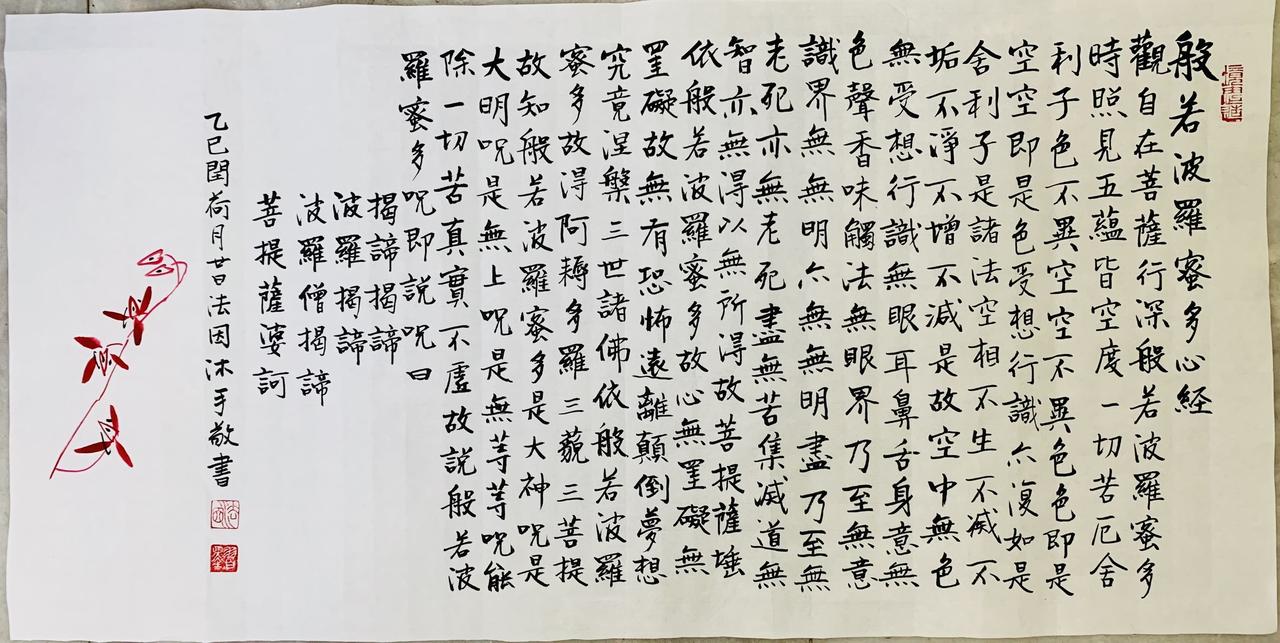 般若波羅蜜多心経
觀自在菩薩行深般若波羅蜜多
時照見五蘊皆空度一切苦厄舍
利子色不異空空不異色色即是
空空即是色受想行識亦復如是
舍利子是諸法空相不生不滅不
垢不淨不增不減是故空中無色
無受想行識無眼耳鼻舌身意無
色聲香味觸法無眼界乃至無意
識界無無明亦無無明盡乃至無
老死亦無老死盡無苦集滅道無
智亦無得以無所得故菩提薩埵
依般若波羅蜜多故心無罣礙無
罣礙故無有恐怖遠離顛倒夢想
究竟涅槃三世諸佛依般若波羅
蜜多故得阿耨多羅三藐三菩提
故知般若波羅蜜多是大神呪是
大明呪是無上呪是無等等呪能
除一切苦真實不虛故說般若波
羅蜜多呪即說呪曰
揭諦揭諦
波羅揭諦
波羅僧揭諦
菩提薩婆訶
乙巳閏荷月廿日法因沐手敬書
法因